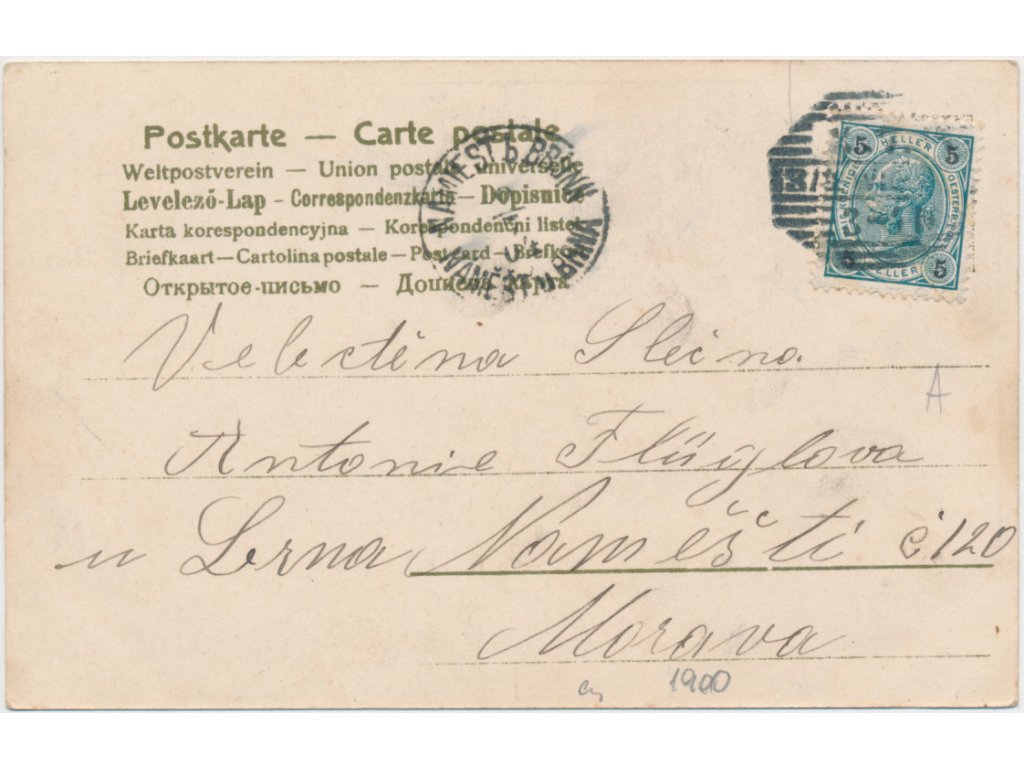 Postkarte — Carte postale
Weltpostverein — Union postale universelle
Levelező-Lap - Correspondenzkarte — Dopisnice
Karta korespondencyjna — Korespondenční lístek
Briefkaart — Cartolina postale — Postcard — Brefkort
Открытое-письмо —
NAMIEST b. BRÜNN
NÁMĚŠŤ u BRNA
5 HELLER 5
5 HELLER 5
Velectěna Slečna
A
Antonie Flüglova
u Brna Naměšti č 120
Morava
1900